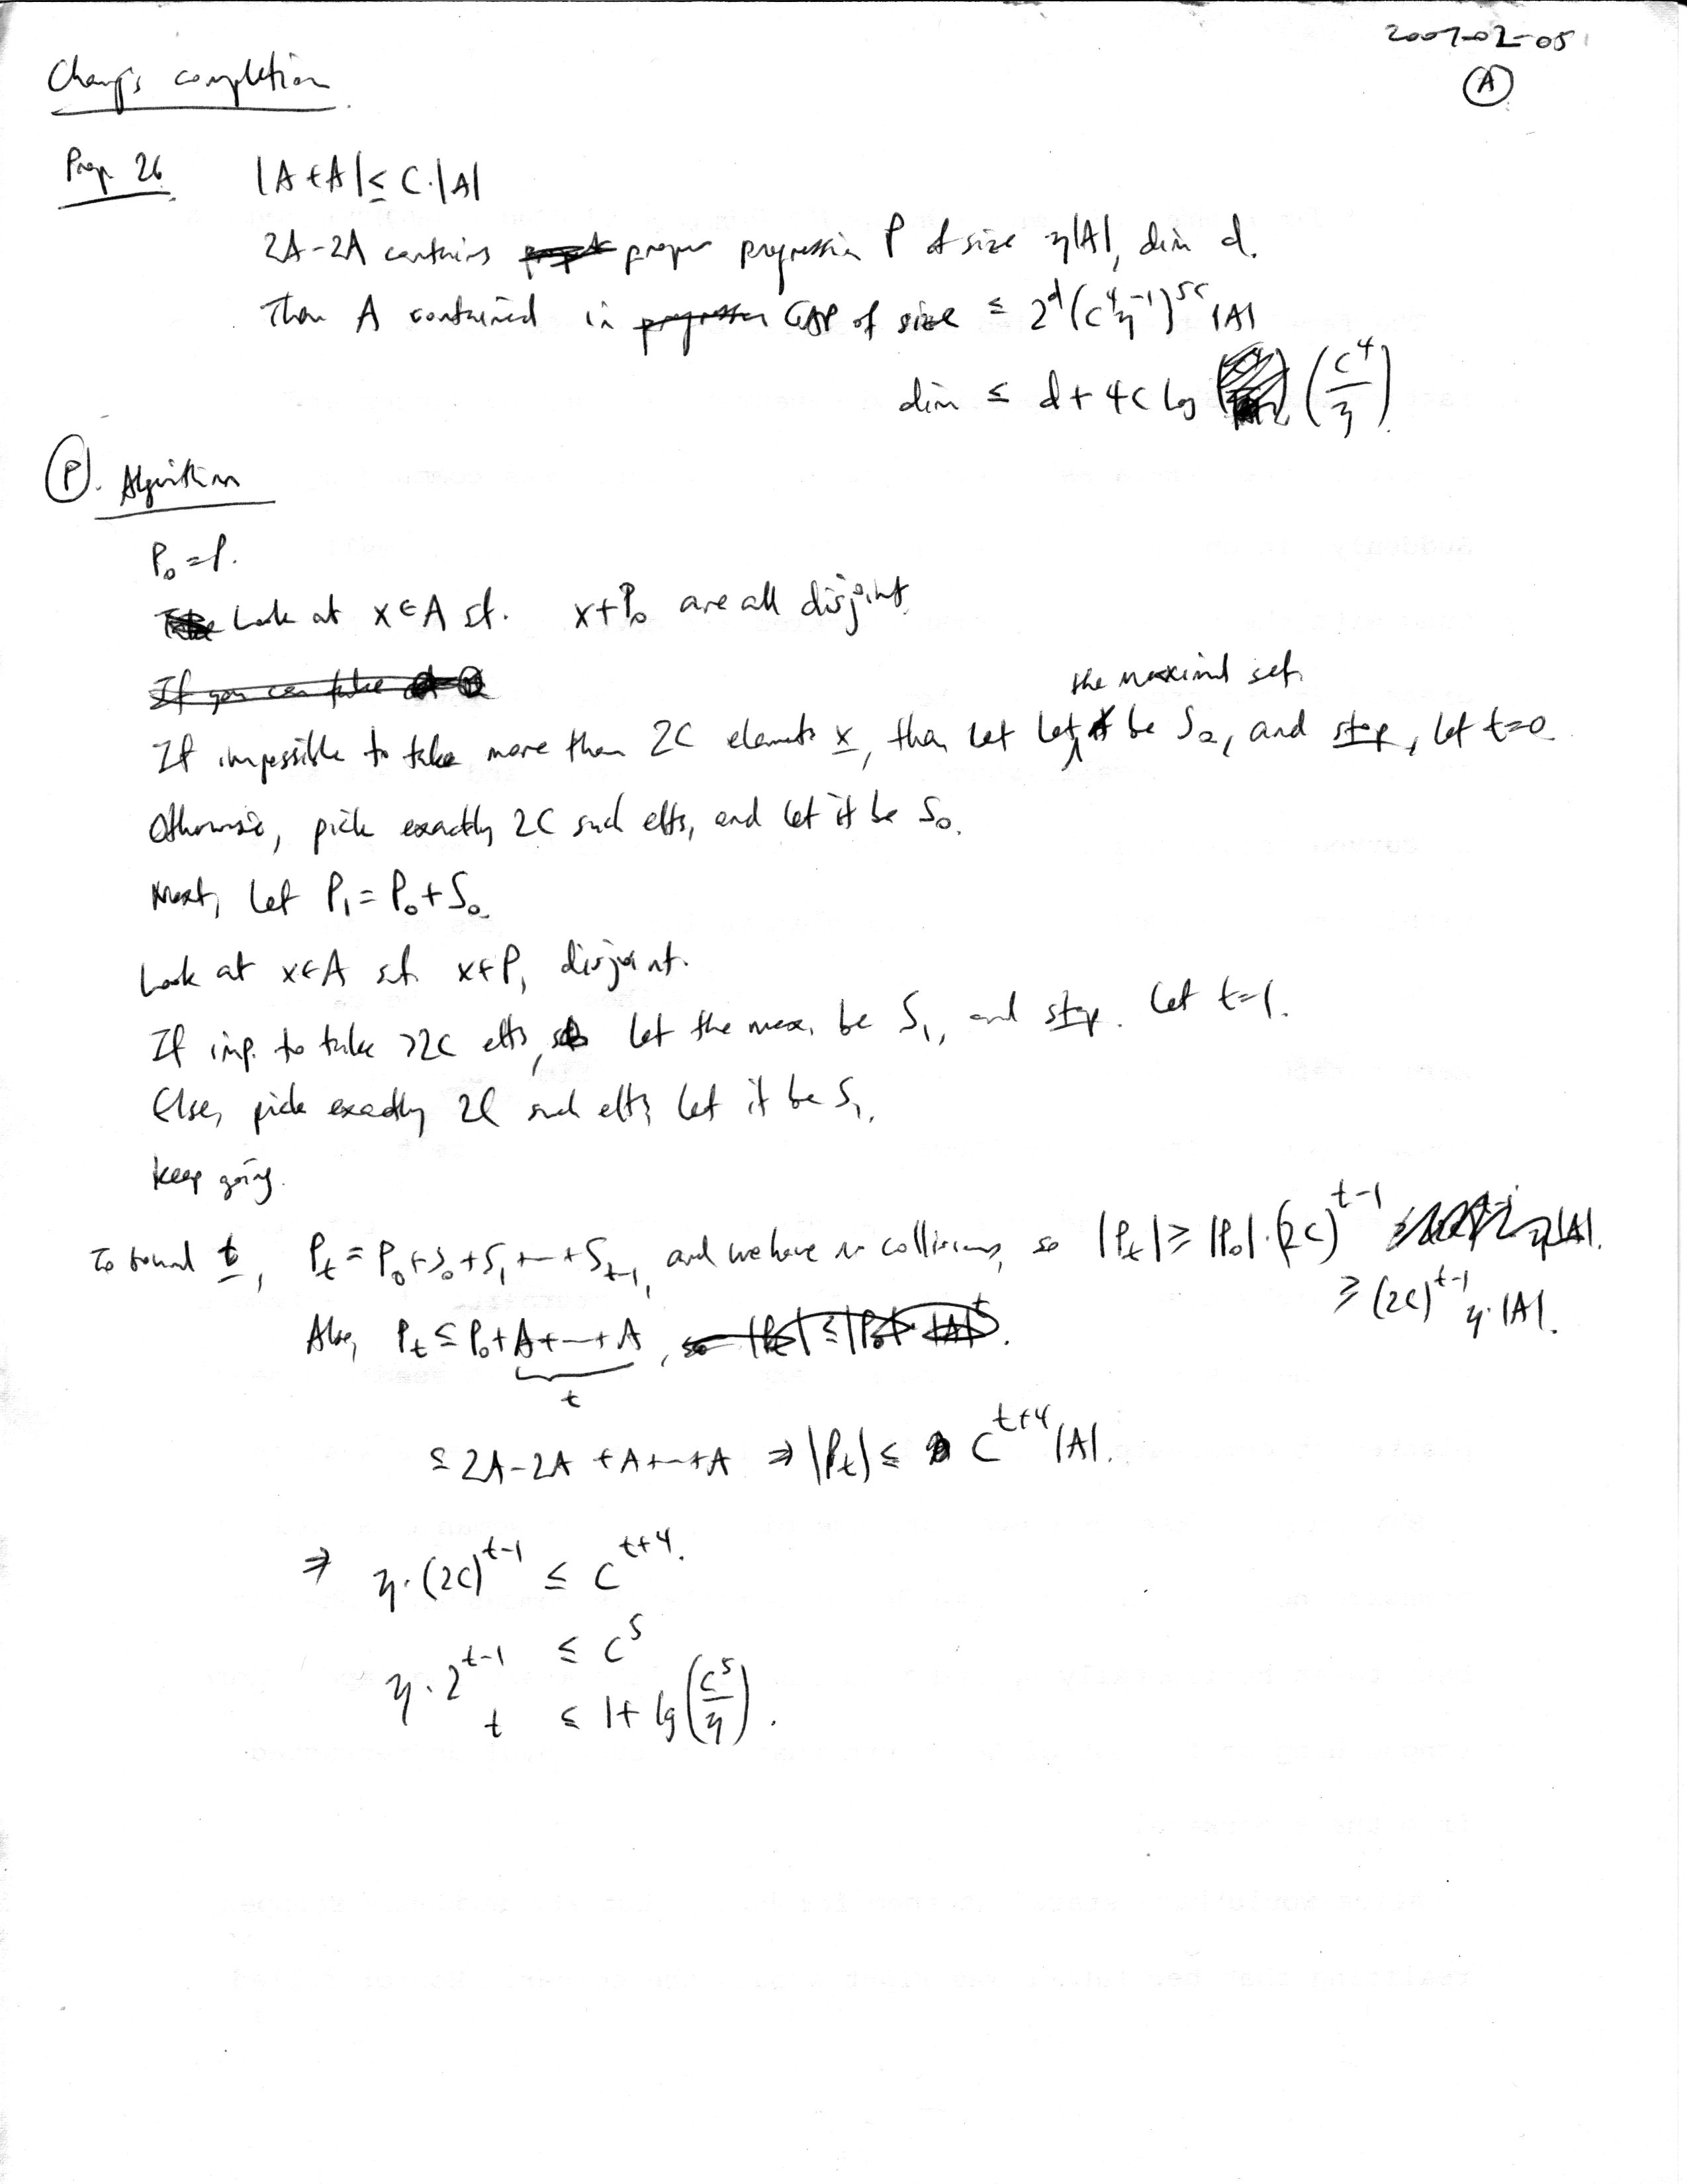 2007-02-05
A
Chang's completion
Prop. 26 |A+A| ≤ C·|A|
2A-2A contains proper progression P of size η|A|, dim d.
Then A contained in GAP of size ≤ 2^d (C^4 η^-1)^5C |A|
dim ≤ d + 4C log (C^4/η).
P. Algorithm
P₀ = P.
Look at x∈A st. x+P₀ are all disjoint.
the maximal set
If impossible to take more than 2C elements x, then let let be S₀, and stop, let t=0
Otherwise, pick exactly 2C such elts, and let it be S₀.
Next, let P₁ = P₀ + S₀.
Look at x∈A st. x+P₁ disjoint.
If imp. to take >2C elts, let the max. be S₁, and stop. Let t=1.
Else, pick exactly 2C such elts, let it be S₁.
keep going.
To bound t, P_t = P₀+S₀+S₁+...+S_{t-1}, and we have no collisions, so |P_t| ≥ |P₀|·(2C)^{t-1}
≥ (2C)^{t-1} η·|A|.
Also, P_t ⊆ P₀+A+...+A,
t
⊆ 2A-2A+A+...+A ⇒ |P_t| ≤ C^{t+4} |A|.
⇒ η·(2C)^{t-1} ≤ C^{t+4}.
η·2^{t-1} ≤ C^5
t ≤ 1+lg(C^5/η).